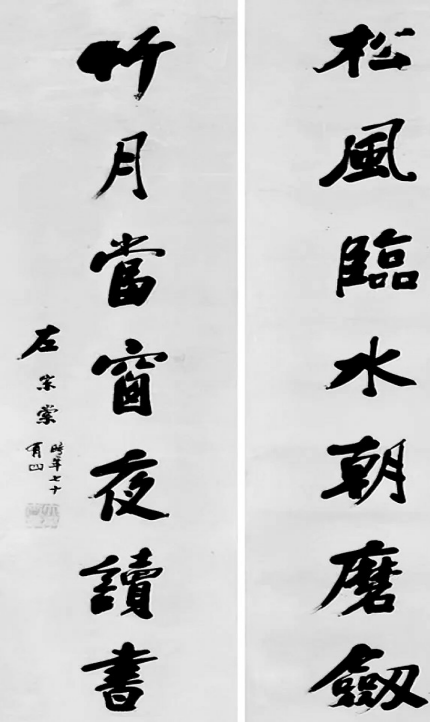 松風臨水朝磨劔
竹月當窗夜讀書
左宗棠
時年七十
有四